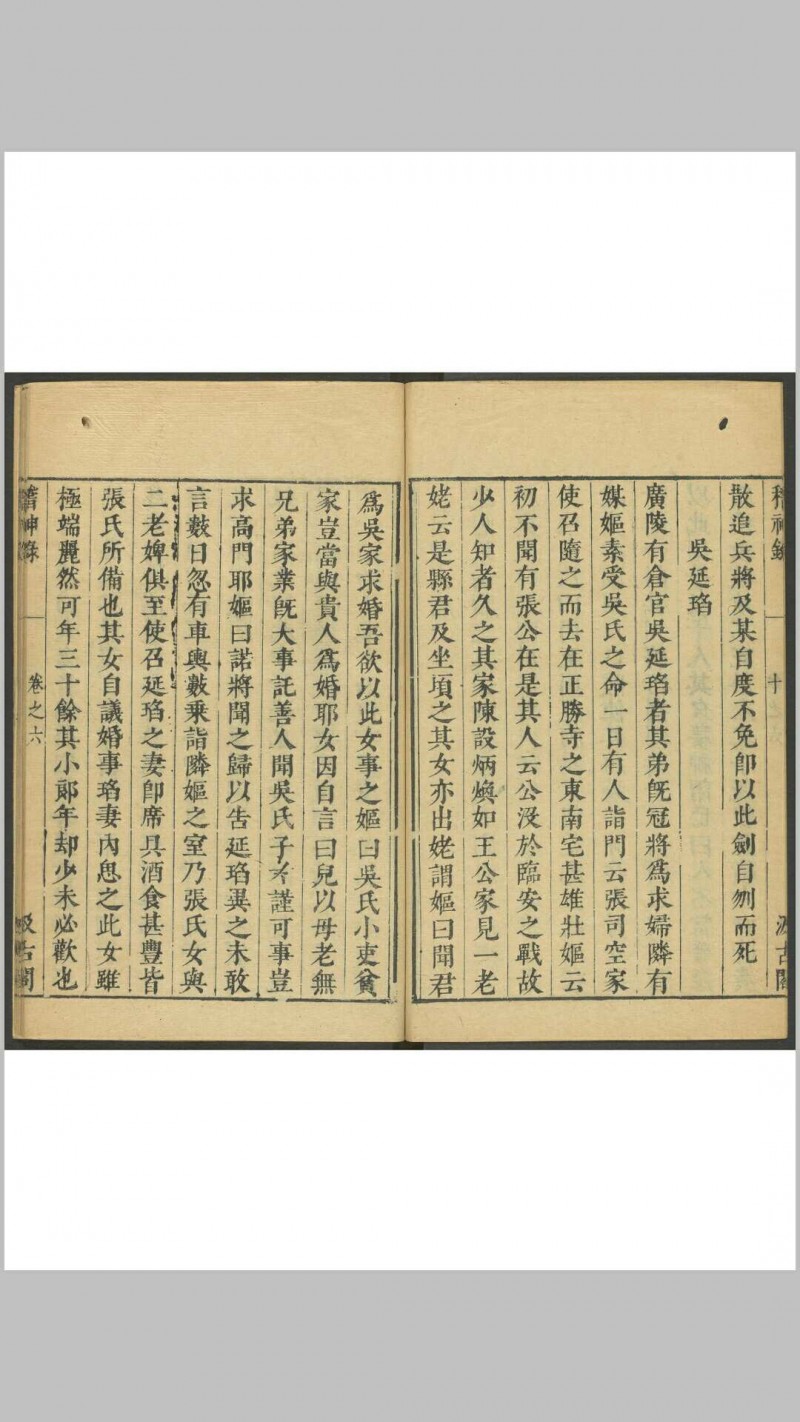 稽神錄
十
汲古閣
散追兵將及某自度不免卽以此劍自刎而死
吳延瑫
廣陵有倉官吳延瑫者其弟旣冠將爲求婦隣有
媒嫗素受吳氏之命一日有人詣門云張司空家
使召隨之而去在正勝寺之東南宅甚雄壯嫗云
初不聞有張公在是其人云公沒於臨安之戰故
少人知者久之其家陳設炳煥如王公家見一老
姥云是縣君及坐頃之其女亦出姥謂嫗曰聞君
爲吳家求婚吾欲以此女事之嫗曰吳氏小吏貧
家豈當與貴人爲婚耶女因自言曰兒以母老無
兄弟家業旣大事託善人聞吳氏子孝謹可事豈
求高門耶嫗曰諾將聞之歸以告延瑫異之未敢
言數日忽有車輿數乘詣隣嫗之室乃張氏女與
二老婢俱至使召延瑫之妻卽席具酒食甚豐皆
張氏所備也其女自議婚事瑫妻內思之此女雖
極端麗然可年三十餘其小郞年却少未必歡也
稽神錄
卷之六
汲古閣